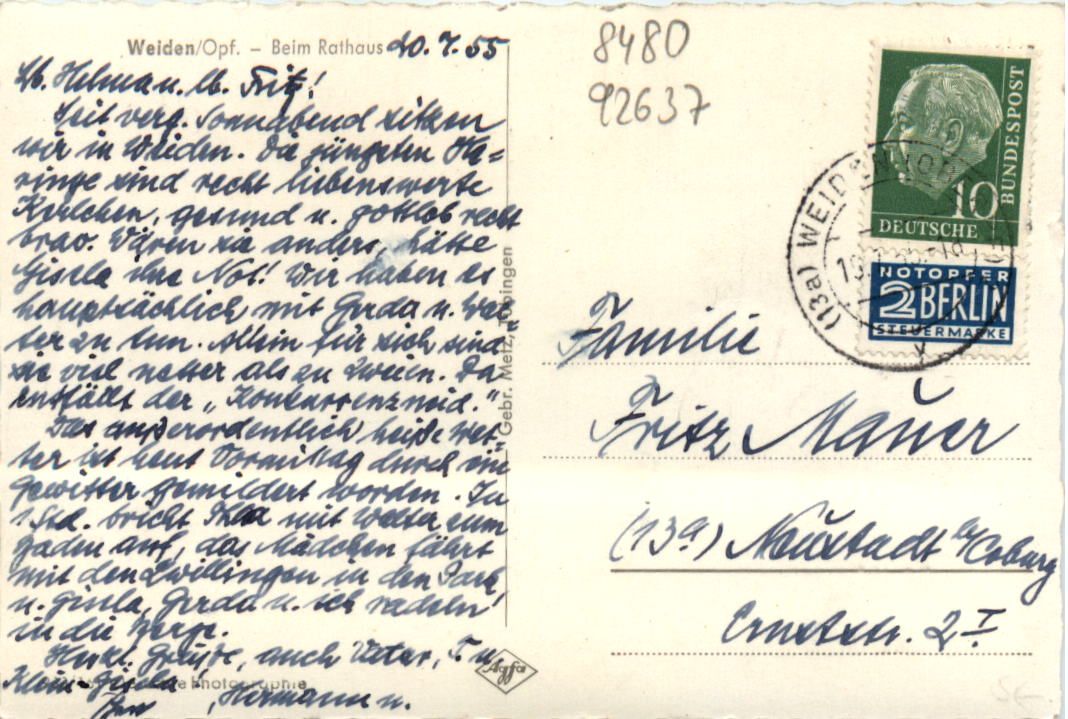 Weiden/Opf. – Beim Rathaus 10.7.55
Lb. Helma u. lb. Fritz!
Seit verg. Sonnabend sitzen
wir in Weiden. Die jüngsten Ha=
ringe sind recht liebenswerte
Kerlchen, gesund u. gottlob recht
brav. Wären sie anders, hätte
Gisela ihre Not! Wir haben es
hauptsächlich mit Gerda u. Wal-
ter zu tun. Allein für sich sind
sie viel netter als zu Zweien. Da
entfällt der „Konkurrenzneid."
Das außerordentlich heiße Wet-
ter ist heut Vormittag durch ein
Gewitter gemildert worden. In
1 Std. bricht mit Walter zum
Baden auf, das Mädchen fährt
mit den Zwillingen in den Park
u. Gisela, Gerda u. ich radeln
in die Berge.
Herzl. Grüße, auch Vater, T. u.
Klein-Gisela!
Hermann u.
Photographie
Gebr. Metz, Tübingen
Agfa
8480
92637
DEUTSCHE BUNDESPOST
10
NOTOPFER
2 BERLIN
STEUERMARKE
(13a) WEIDEN (OPF
Familie
Fritz Mauer
(13a) Neustadt b/Coburg
Ernststr. 2 I